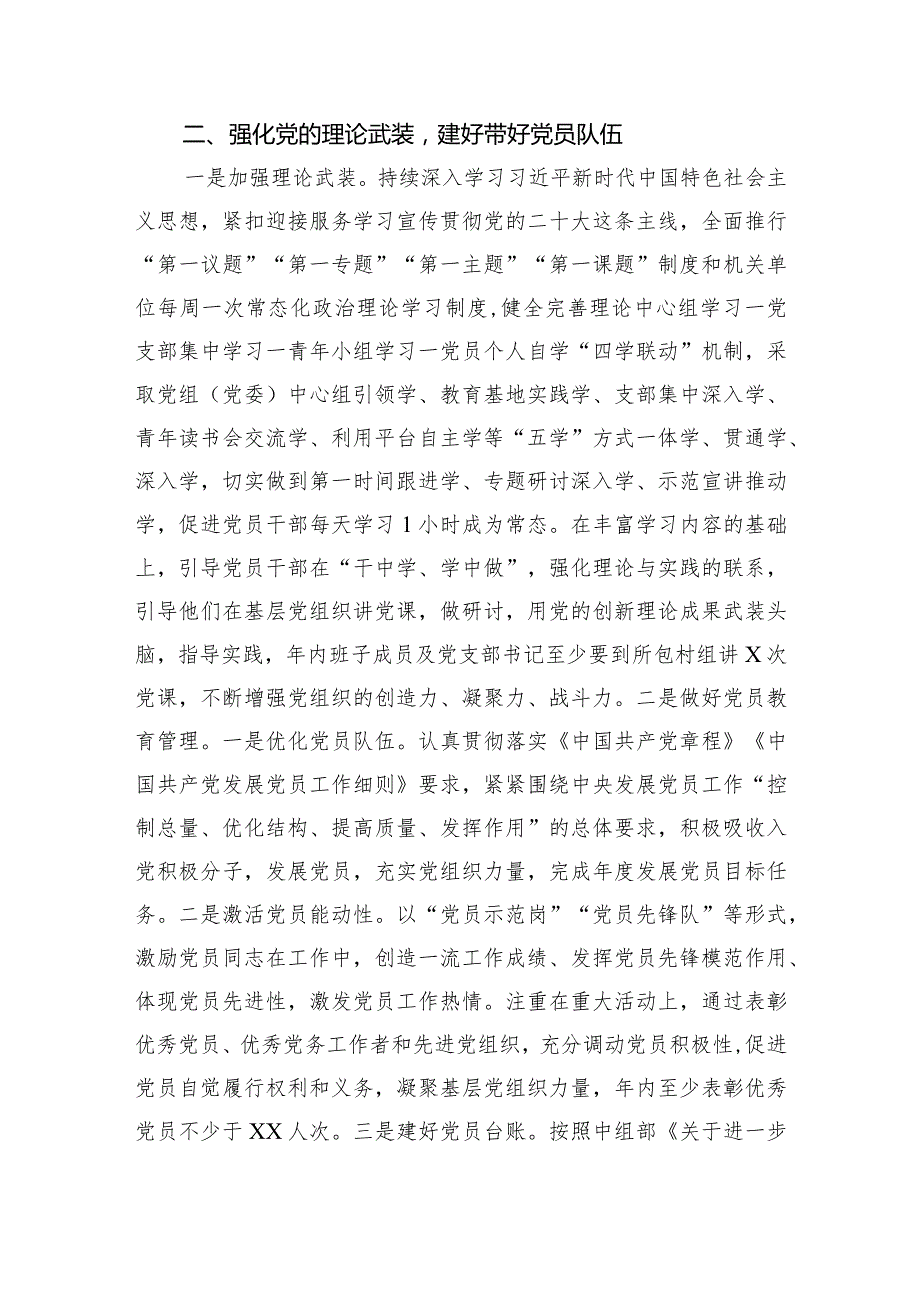 二、强化党的理论武装，建好带好党员队伍
一是加强理论武装。持续深入学习习近平新时代中国特色社会主
义思想，紧扣迎接服务学习宣传贯彻党的二十大这条主线，全面推行
“第一议题”“第一专题”“第一主题”“第一课题”制度和机关单
位每周一次常态化政治理论学习制度,健全完善理论中心组学习一党
支部集中学习一青年小组学习一党员个人自学“四学联动”机制，采
取党组（党委）中心组引领学、教育基地实践学、支部集中深入学、
青年读书会交流学、利用平台自主学等“五学”方式一体学、贯通学、
深入学，切实做到第一时间跟进学、专题研讨深入学、示范宣讲推动
学，促进党员干部每天学习1小时成为常态。在丰富学习内容的基础
上，引导党员干部在“干中学、学中做”，强化理论与实践的联系，
引导他们在基层党组织讲党课，做研讨，用党的创新理论成果武装头
脑，指导实践，年内班子成员及党支部书记至少要到所包村组讲X次
党课，不断增强党组织的创造力、凝聚力、战斗力。二是做好党员教
育管理。一是优化党员队伍。认真贯彻落实《中国共产党章程》《中
国共产党发展党员工作细则》要求，紧紧围绕中央发展党员工作“控
制总量、优化结构、提高质量、发挥作用”的总体要求，积极吸收入
党积极分子，发展党员，充实党组织力量，完成年度发展党员目标任
务。二是激活党员能动性。以“党员示范岗”“党员先锋队”等形式，
激励党员同志在工作中，创造一流工作成绩、发挥党员先锋模范作用、
体现党员先进性，激发党员工作热情。注重在重大活动上，通过表彰
优秀党员、优秀党务工作者和先进党组织，充分调动党员积极性,促进
党员自觉履行权利和义务，凝聚基层党组织力量，年内至少表彰优秀
党员不少于XX人次。三是建好党员台账。按照中组部《关于进一步